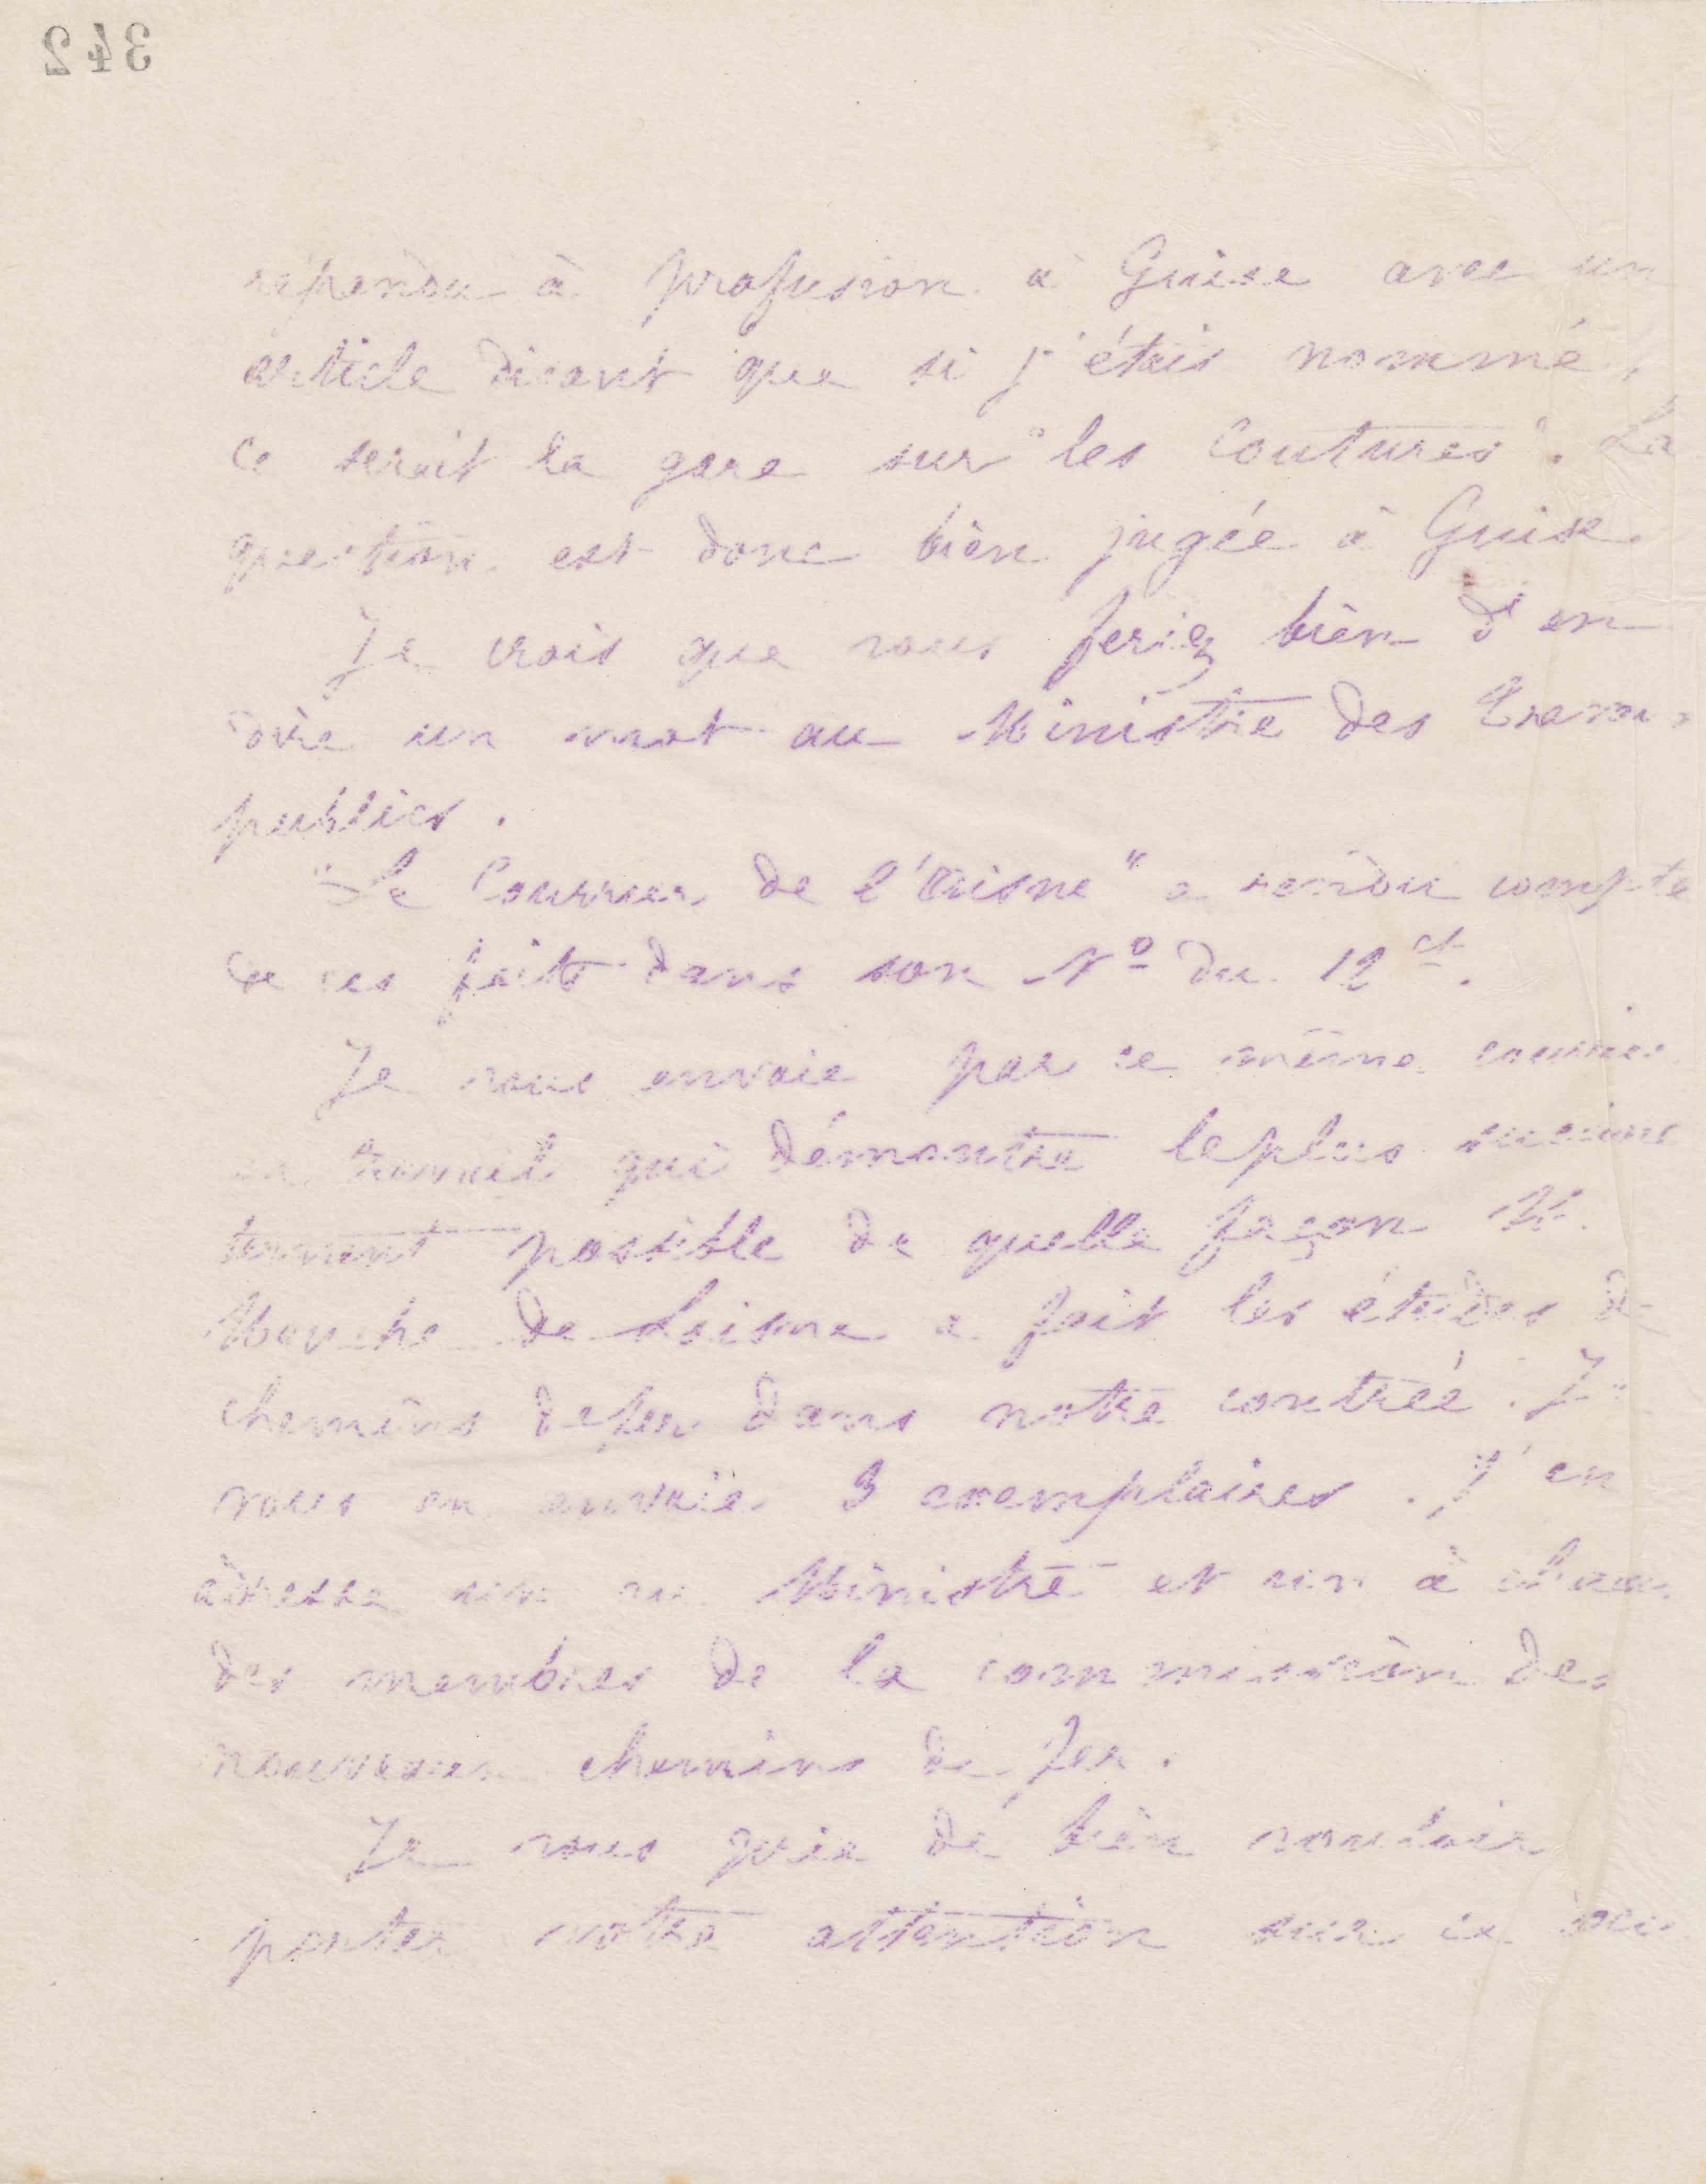 342
répandu à profusion à Guise avec un
article disant que si j'étais nommé,
ce serait la gare sur "les Coutures". La
question est donc bien jugée à Guise.
Je crois que vous feriez bien d'en
dire un mot au Ministre des Travaux
publics.
"Le Courrier de l'Aisne" a rendu compte
de ces faits dans son Nº du 12 ct.
Je vous envoie par ce même courrier
un travail qui démontre le plus succinc
tement possible de quelle façon M.
de Loisne a fait les études de
chemins de fer dans notre contrée. Je
vous en envoie 3 exemplaires. J'en
adresse un au Ministre et un à chacun
des membres de la commission des
nouveaux chemins de fer.
Je vous prie de bien vouloir
porter votre attention sur ce